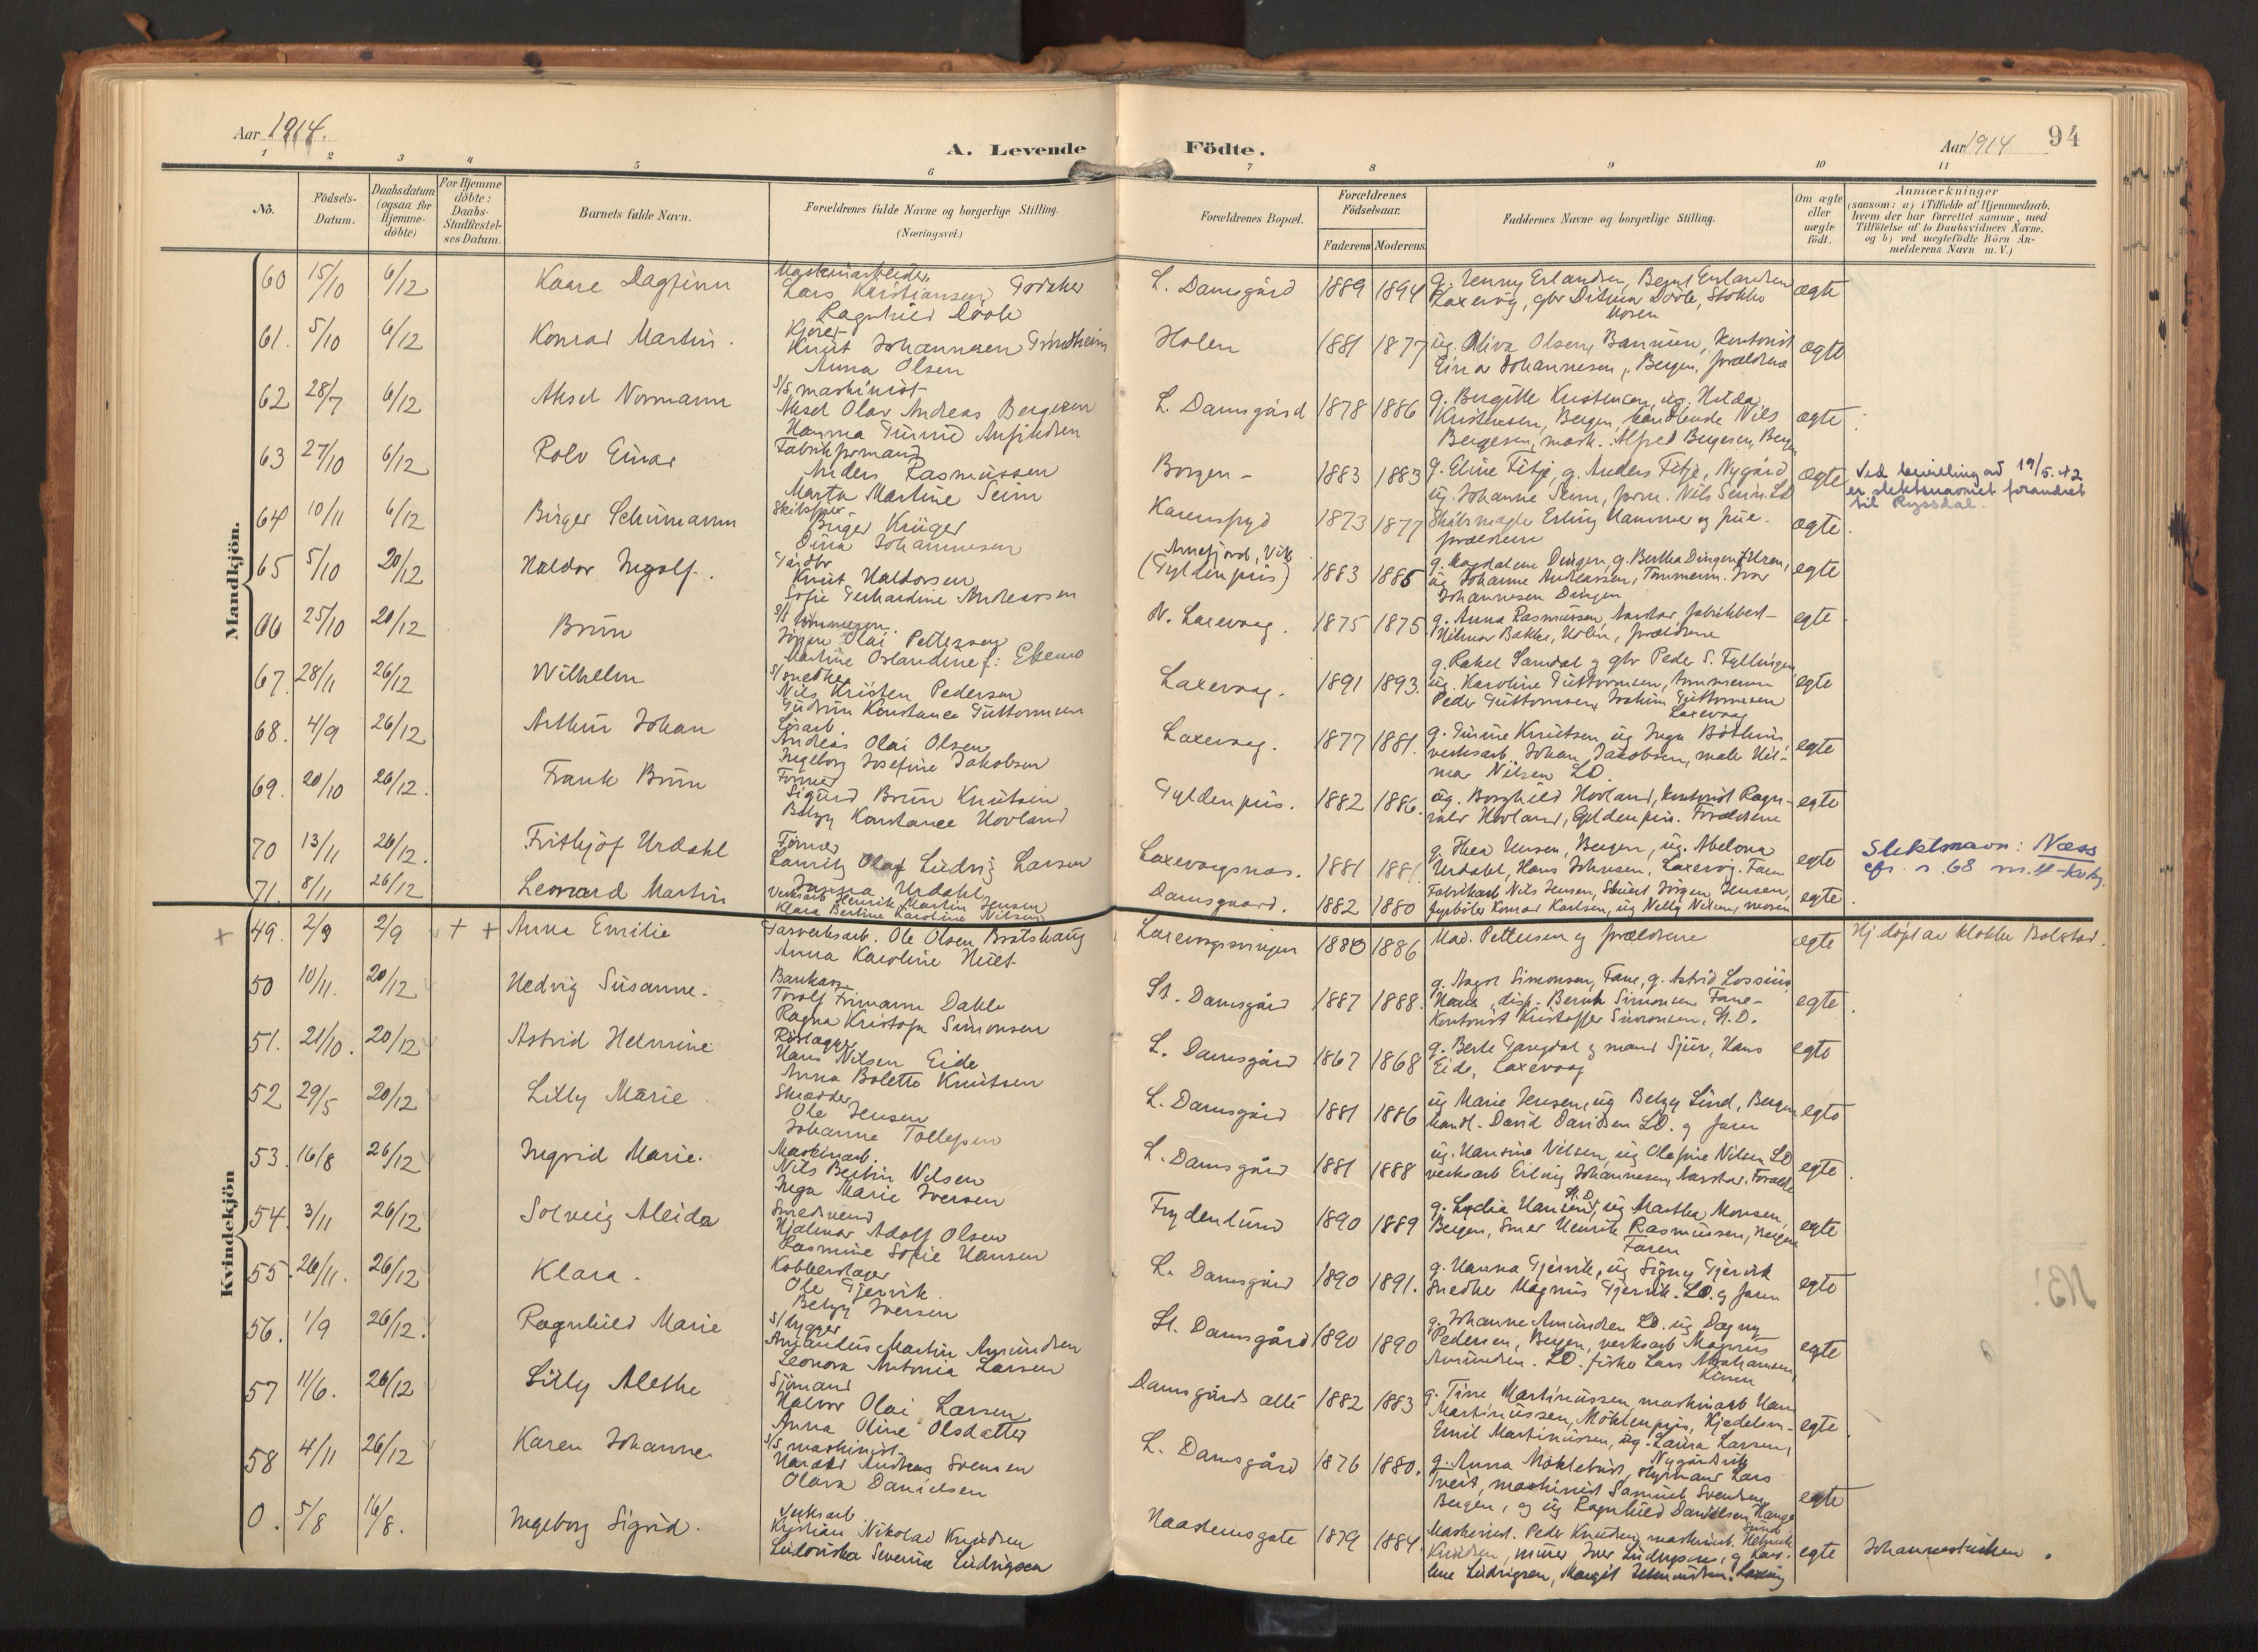 Aar 1914.
A. Levende Födte.
Aar 1914
94
1 2 3 4 5 6 7 8 9 10 11
No.
Födsels-Datum.
Daabsdatum (ogsaa for Hjemme-döbte)
For Hjemme döbte: Daabs-Stadfæstel-ses Datum.
Barnets fulde Navn.
Forældrenes fulde Navne og borgerlige Stilling.
(Næringsvei.)
Forældrenes Bopæl.
Forældrenes Födselsaar.
Faderens Moderens
Faddernes Navne og borgerlige Stilling.
Om ægte eller uægte födt.
Anmærkninger
(saasom: a) i Tilfælde af Hjemmedaab,
hvem der har forrettet samme, med
Tilföielse af to Daabsvidners Navne.
og b) ved uægtefödte Börn An-
melderens Navn m. V.)
Mandkjön.
60 15/10 6/12 Kaare Dagfinn
Maskinarbeider
Lars Kristiansen
Ragnhild
L. Damsgård 1889 1894 g. Jenny Erlandsen, Bernt Erlandsen
Laxevåg, ægte
61. 5/10 6/12 Konrad Martin.
Kjører
Knut Johannesen Trindheim
Anna Olsen
Holen 1881 1877 ug. Oliva Olsen, kontorist
Einar Johannesen, Bergen, forældrene ægte
62 28/7 6/12 Aksel Normann
S/S maskinist
Aksel Olav Andreas Bergesen
L. Damsgård 1878 1886 g. Bergitte Kristensen, ug. Hilda
Kristensen, Bergen, handlende Nils
Bergesen, mask. Alfred Bergesen, Bergen ægte
63 27/10 6/12 Rolv Einar
Fabrikformand
Anders Rasmussen
Marta Martine Seim
Borgen - 1883 1883 g. Eline Fitje, g. Anders Fitje, Nygård
ug. Johanne Seim, form. Nils Seim LD ægte
Ved bevilling av 19/5.42
er slektsnavnet forandret
til Ryssdal.
64 10/11 6/12 Birger Schumann
Birger Krüger
Dina Johannesen
Karensfryd 1873 1877 Skibsmægle Erling Hammer og frue.
forældrene ægte.
65 5/10 20/12 Haldor Ingolf.
Gårdbr
Knut Haldorsen
Sofie Gerhardine Andreassen
Arnefjord, Vik
(Gyldenpris) 1883 1885 g. Magdalene Dingen, g. Bertha Dingen
ug. Johanne Andreassen, Tømmerm. Ivar
Johannesen Dingen egte
66 25/10 20/12 Brun
S/S tømmerm.
Jørgen Olai Pettersen
Martine Oslandine f: Ekemo
N. Laxevaag. 1875 1875 g. Anna Rasmussen,
Hilmar Bakke, Holen, forældrene egte
67. 28/11 26/12 Wilhelm
S/snedker
Nils Kristen Pedersen
Gudrun Konstance Guttormsen
Laxevaag. 1891 1893. g. Rakel Sandal og gbr Peder S. Fyllingen
ug. Karoline Guttormsen, tømmerm
Peder Guttormsen, Joakim Guttormsen
Laxevaag egte
68. 4/9 26/12 Arthur Johan
Løsarb
Andreas Olai Olsen
Ingeborg Josefine Jakobsen
Laxevaag. 1877 1881. g. Gurine Knutsen, ug Inga Bøthun,
verksarb. Johan Jakobsen, maler Hil-
mar Nilsen LD. egte
69. 20/10 26/12. Frank Brun
Former
Sigurd Brun Knutsen
Betzy Konstance Hovland
Gyldenpris. 1882 1886. ug. Borghild Hovland, kontorist Ragn-
vald Hovland, Gyldenpris. Forældrene egte
70 13/11 26/12. Frithjof Urdahl
Former
Lauritz Olaf Ludvig Larsen
Urdahl
Laxevaagsnes. 1881 1881. g. Thea Jensen, Bergen, ug. Abelona
Urdahl, Hans Johnsen, Laxevåg. Faren egte
Slektsnavn: Næss
cfr. n. 68
71. 8/11 26/12 Leonard Martin
Verksarb Henrik Martin Jensen
Klara Bertine Karoline Nilsen
Damsgaard. 1882 1880 Fabrikarb Nils Jensen, Jørgen Jensen,
fyrbøter Konrad Karlsen, ug Nelly Nilsen, moren egte.
Kvindekjön
+ 49. 2/9 2/9 + + Anna Emilie
Garverksarb. Ole Olsen Brotshaug
Anna Karoline Huet
Laxevaagsvingen 1880 1886 Mad. Pettersen og forældrene egte Hj. døpt av klokker Bolstad.
50 10/11. 20/12 Hedvig Susanne.
Bankass.
Torolf Frimann Dahle
Ragna Kristofa Simonsen
St. Damsgård 1887 1888. g. Aagot Simonsen, Fane, g. Astrid Lossius
Haus, disp. Bernh. Simonsen Fane -
Kontorist Kristoffer Simonsen, St. D. egte.
51. 21/10. 20/12 Astrid Helmine
Rørlægger
Hans Nilsen Eide
Anna Bolette Knutsen
L. Damsgård 1867 1868 g. Berte Gangdal og mand Sjur, Hans
Eide, Laxevaag egte
52 29/5 20/12 Lilly Marie
Skrædder
Ole Jensen
Johanne Tollefsen
L. Damsgård 1881 1886 ug Marie Jensen, ug Betzy Lind, Bergen
handl. David Davidsen LD. og faren egte
53. 16/8 26/12 Ingvid Marie.
Maskinarb.
Nils Bertin Nilsen
Inga Marie Iversen
L. Damsgård 1881 1888 ug. Hansine Nilsen, ug Olefine Nilsen LD
verksarb Erling Johannesen, egte.
54. 3/11 26/12 Solveig Aleida
Smedsvend
Hjalmar Adolf Olsen
Rasmine Sofie Hansen
Frydenlund 1890 1889 g. Lydia Hansen St. D, ug Martha Monsen,
Bergen, Smed Henrik Rasmussen, Bergen
Faren egte
55. 26/11. 26/12 Klara.
Kobberslager
Ole Gjervik.
Betzy Iversen
L. Damsgård 1890 1891. g. Hanna Gjervik, ug Signy Gjervik
Snedker Magnus Gjervik. LD. og faren egte
56. 1/9 26/12. Ragnhild Marie
S/bygger
Amandus Martin Amundsen
Leonora Antonia Larsen
St. Damsgård 1890 1890 g. Johanne Amundsen LD. ug Dagny
Pedersen, Bergen, verksarb Magnus
Amundsen. LD. fisker Lars Abrahamsen,
Kinn egte
57 11/6. 26/12 Lilly Alethe
Sjømand
Halvor Olai Larsen
Anna Oline Olsdatter
Damsgårds allé 1882 1883 g. Tine Martinussen, maskinarb Hans
Martinussen, Möhlenpris, Kjedelsm.
Emil Martinussen, ug. Laura Larsen,
Nygårdsvik egte.
58 4/11 26/12 Karen Johanne
S/S maskinist
Harald Andreas Svensen
Olava Danielsen
L. Damsgård 1876 1880. g. Anna Møklebust, styrmand Lars
Tveit, maskinist Samuel Svendsen,
Bergen, og ug Ragnhild Danielsen, Hauge
sund egte
0. 5/8 16/8. Ingeborg Sigrid.
Verksarb
Kristian Nikolai Knudsen
Ludovika Severine Ludvigsen
Naadensgate 1879 1884. Maskinist. Peder Knudsen, maskinist. Henrik
Knudsen, murer Iver Ludvigsen, g Karo-
line Ludvigsen, Margit egte Johanneskirken.